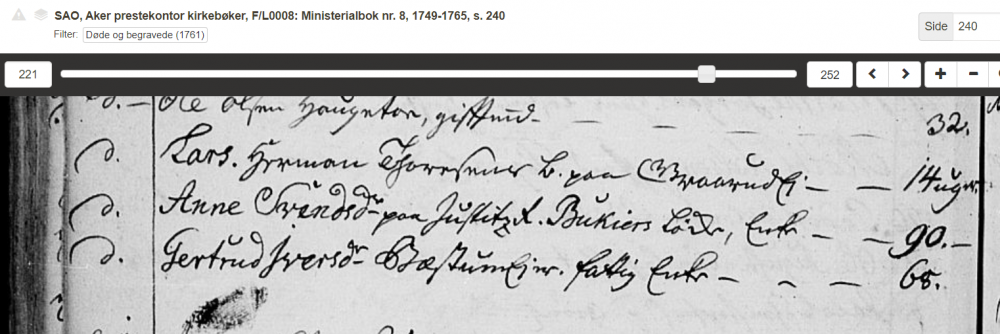 SAO, Aker prestekontor kirkebøker, F/L0008: Ministerialbok nr. 8, 1749-1765, s. 240
Filter: Døde og begravede (1761)
Side 240
221 252
d. — Ole Olsen Haugetoe, gift mand — — — — 32.
d. Lars. Herman Thoresens b. paa — — 14 uger
d. Anne Svendsdr paa Justitz R. Bukiers Löcke, Enke — — 90. —
d. Gertrud Iversdr fattig Enke — — — 68.